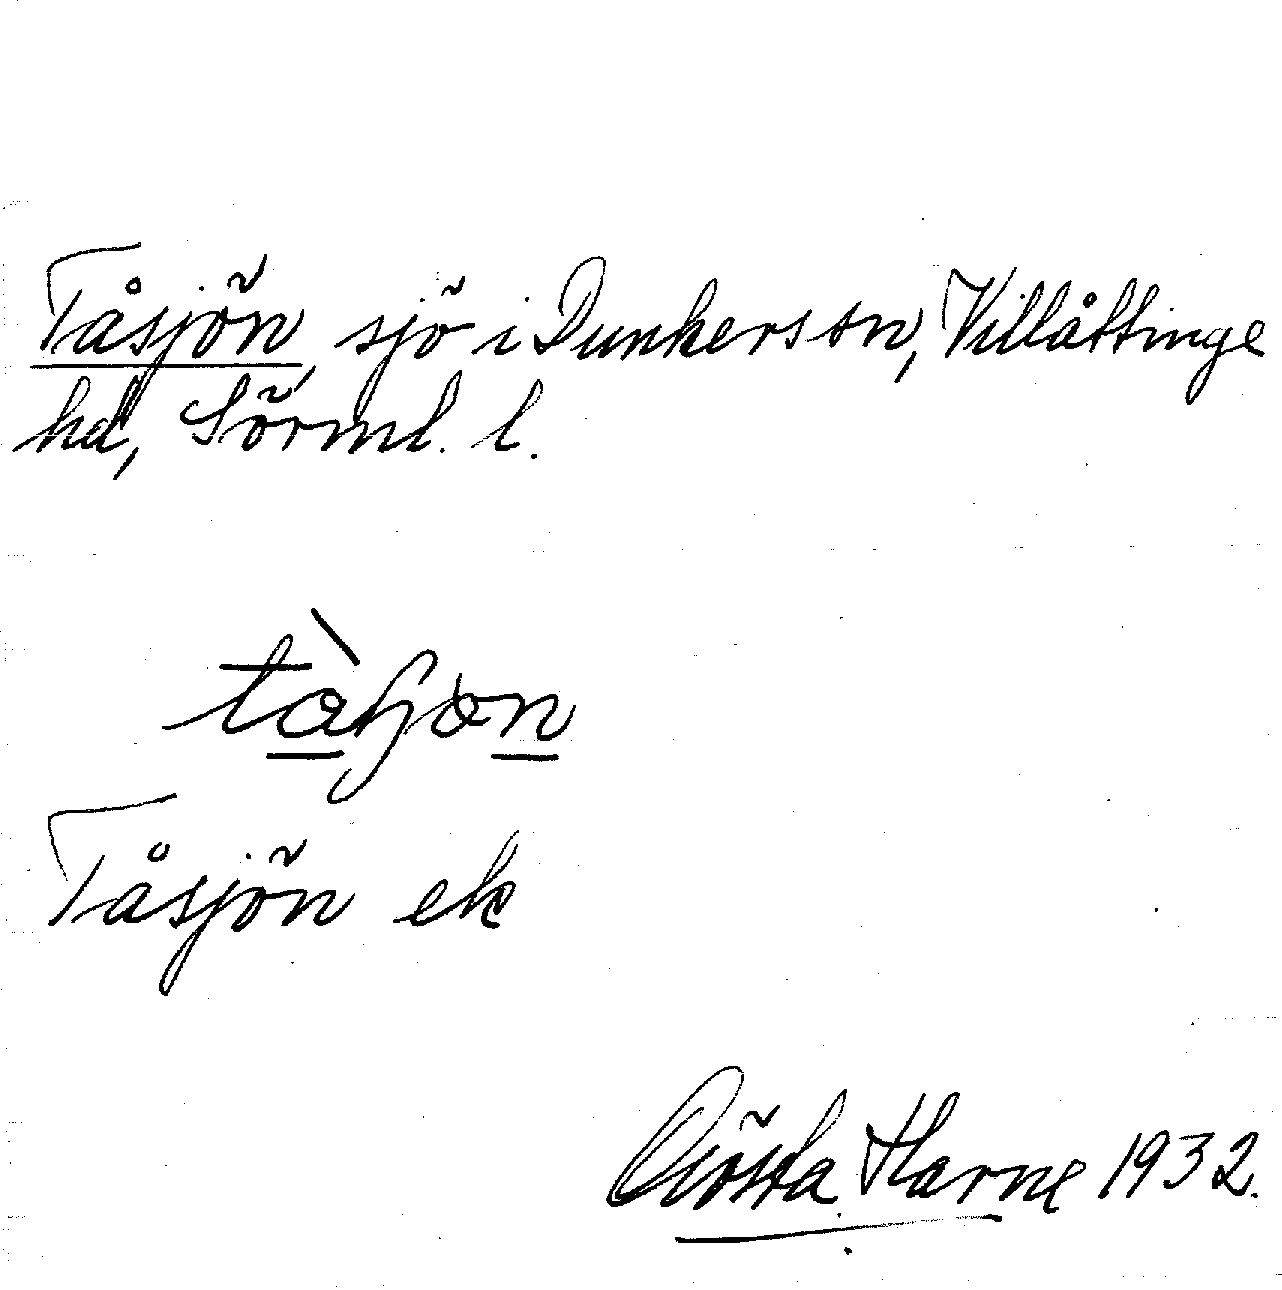 Tåsjön, sjö i Dunkers sn, Villåttinge
hd, Sörml. l.
Tåsjön ek
Gösta Harne 1932.